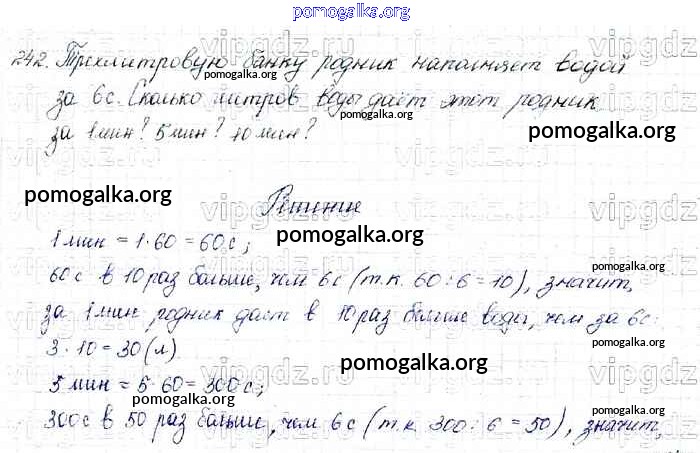 pomogalka.org
242. Трехлитровую банку родник наполняет водой
pomogalka.org
за 6с. Сколько литров воды даёт этот родник
pomogalka.org
за 1 мин? 5 мин? 10 мин?
pomogalka.org
pomogalka.org
pomogalka.org
Решение
1 мин = 1·60 = 60 с;
pomogalka.org
60 с в 10 раз больше, чем 6с (т.к. 60:6=10), значит,
pomogalka.org
за 1 мин родник даст в 10 раз больше воды, чем за 6с:
pomogalka.org
3·10=30(л)
pomogalka.org
5 мин = 5·60=300с;
pomogalka.org
300с в 50 раз больше, чем 6с (т.к. 300:6=50), значит,
pomogalka.org
vipgdz.ru